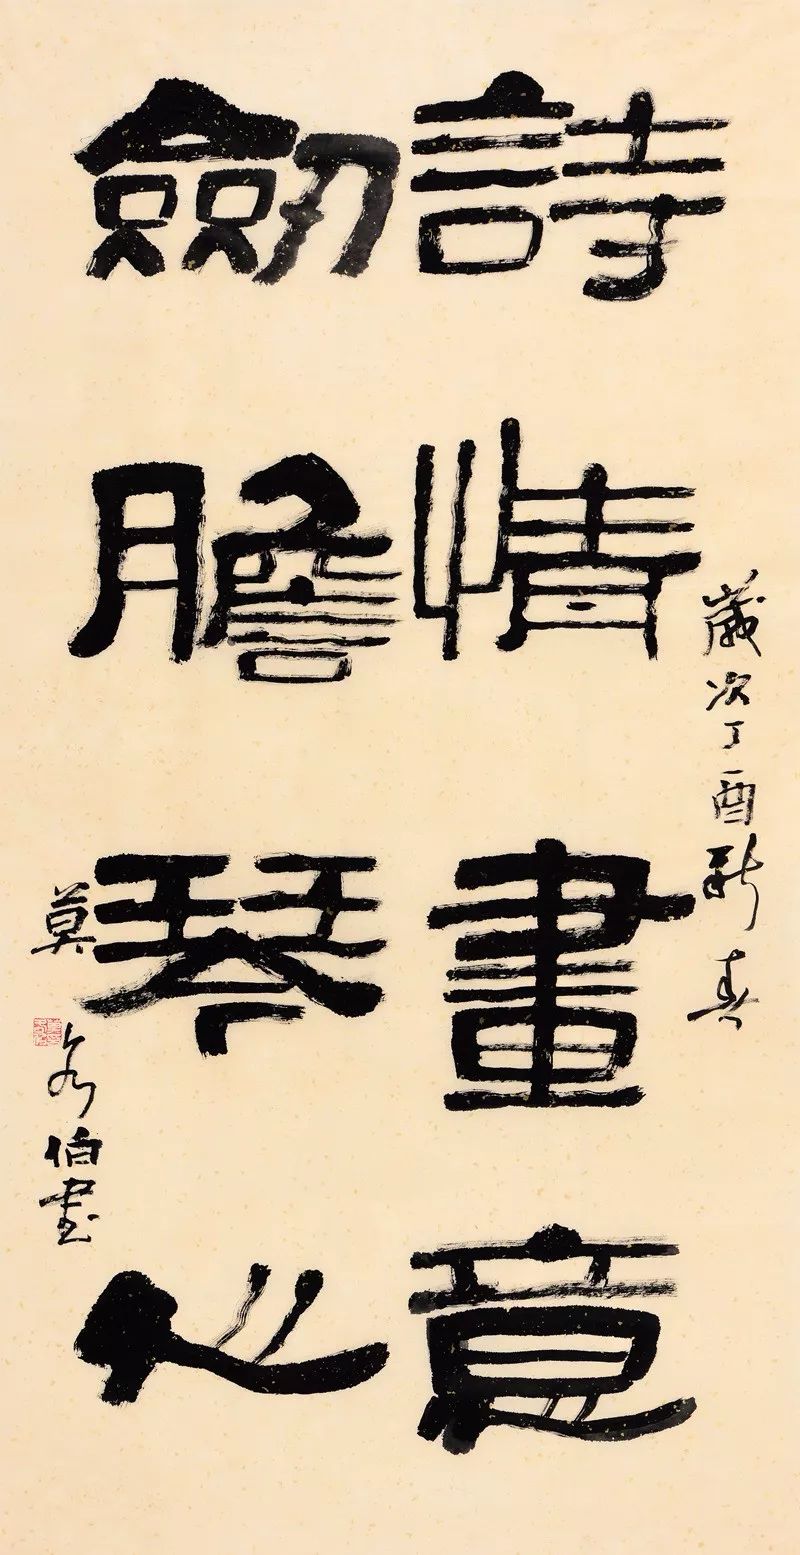 歲次丁酉新春
詩情畫意
劒膽琴心
莫各伯書